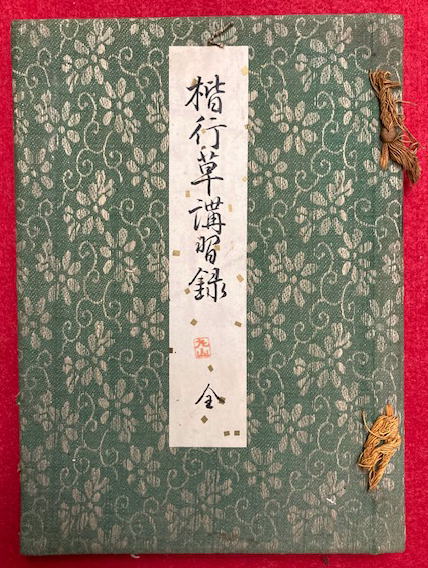 楷行草講習録
全